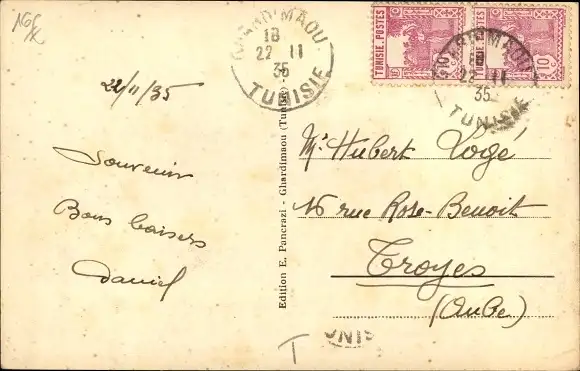 GHARDIMAOU
18
22 11
35
TUNISIE
TUNISIE.POSTES
10c
TUNISIE.POSTES
10c
GHARDIMAOU
18
22 11
35
TUNISIE
22/11/35
Souvenir
Bons baisers
Daniel
Edition E. Pancrazi - Ghardimaou (Tunisie)
Mr Hubert Logé
16 rue Rose-Benoit
Troyes
(Aube)
T
UNIS